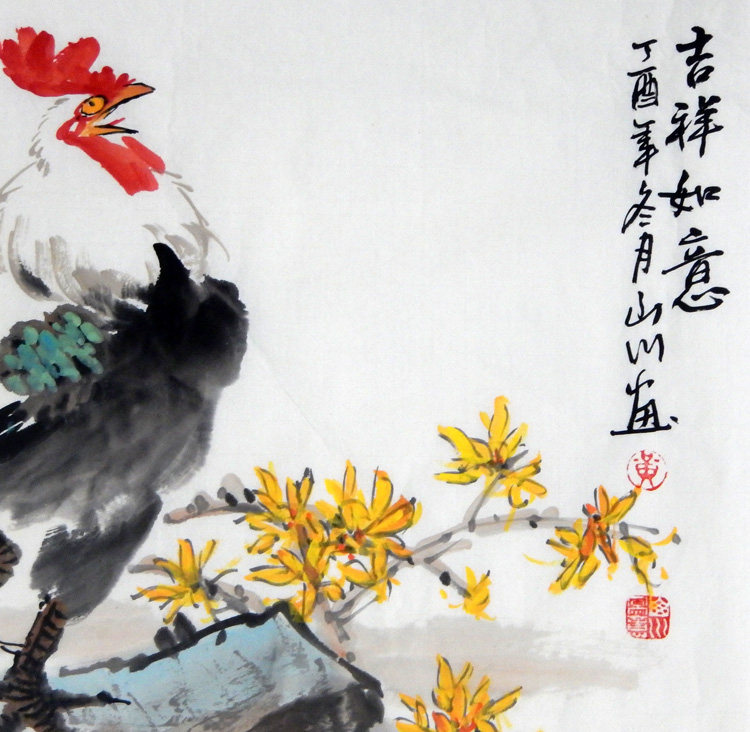 吉祥如意
丁酉年冬月山川画
黄